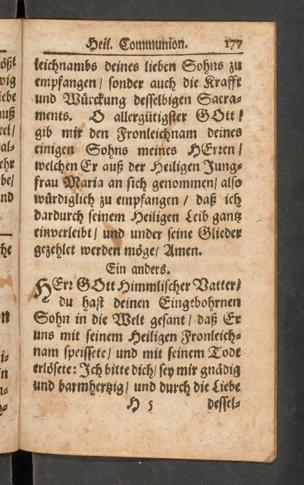 Heil. Communion. 177
leichnambs deines lieben Sohns zu
empfangen / sonder auch die Krafft
und Würckung desselbigen Sacra-
ments. O allergütigster GOtt /
gib mir den Fronleichnam deines
einigen Sohns meines HErren /
welchen Er auß der Heiligen Jung-
frau Maria an sich genommen / also
würdiglich zu empfangen / daß ich
dardurch seinem Heiligen Leib gantz
einverleibt / und under seine Glieder
gezehlet werden möge / Amen.
Ein anders.
HErr GOtt Himmlischer Vatter /
du hast deinen Eingebohrnen
Sohn in die Welt gesant / daß Er
uns mit seinem Heiligen Fronleich-
nam speissete / und mit seinem Todt
erlösete : Ich bitte dich / sey mir gnädig
und barmhertzig / und durch die Liebe
H 5 dessel-